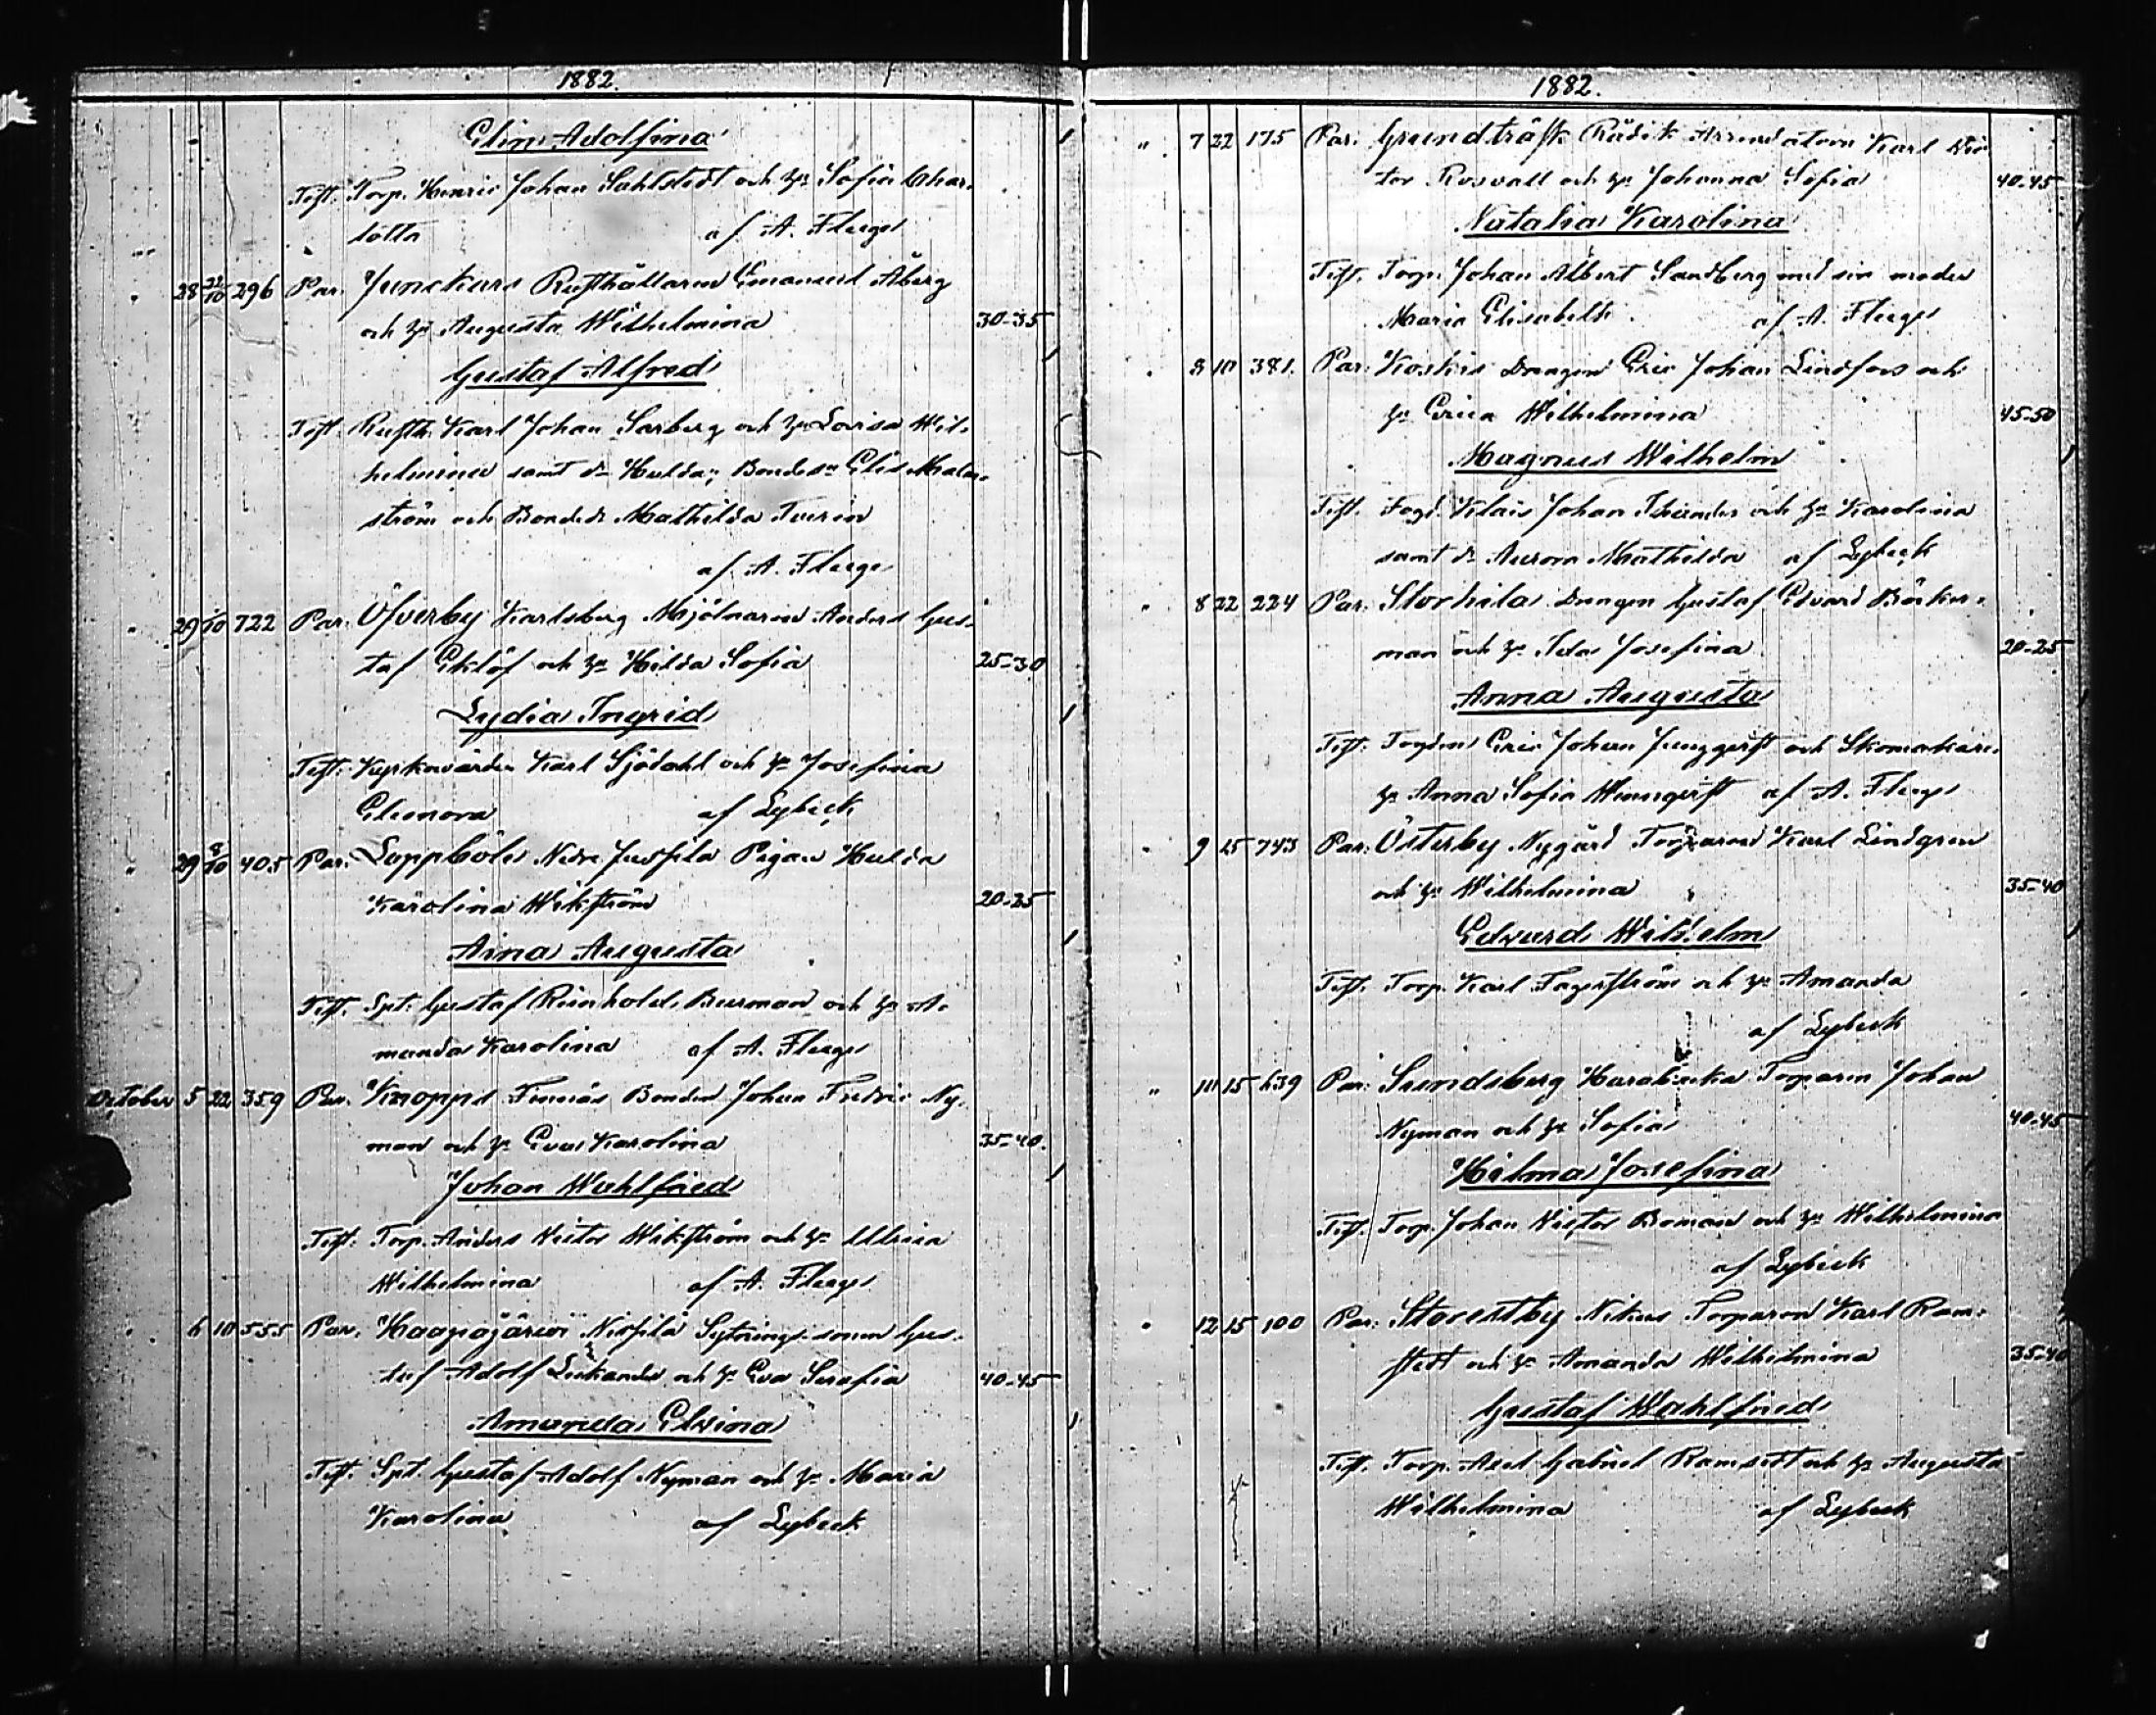 1882.
Elin Adolfina
Test. Torp. Henric Johan Sahlstedt och h:u Sofia Char-
lotta af A. Fleege
" 28 22/10 296 Par. Junckars Rusthållaren Emanuel Åberg
och h:u Augusta Wilhelmina 30-35
Gustaf Alfred
Test. Rusth. Karl Johan Sarberg och h:u Lovisa Wil-
helmina samt d:r Hulda; Bondes:n Elis Malm-
ström och Bonded:r Mathilda Tverin
af A. Fleege
" 29 /10 722 Par. Öfverby Karlsberg Mjölnaren Anders Gus-
taf Eklöf och h:u Hilda Sofia 25-30
Lydia Ingrid
Test. Kyrkovärden Karl Sjödahl och h:u Josefina
Eleonora af Lybeck
" 29 8/10 405 Par. Loppböle Nedre Jussila Pigan Hulda
Karolina Wikström 20-25
Aina Augusta
Test. Spt. Gustaf Reinhold Burman och h:u A-
manda Karolina af A. Fleege
October 5 22 359 Par. Knopps Finnäs Bonden Johan Fredric Ny-
man och h:u Eva Karolina 35-40.
Johan Wahlfried
Test. Torp. Anders Victor Wikström och h:u Ulrica
Wilhelmina af A. Fleege
" 6 10 555 Par. Haapajärvi Nissilä Sytnings-sonen Gus-
taf Adolf Leikander och h:u Eva Serafia 40-45
Amanda Elvina
Test. Spt. Gustaf Adolf Nyman och h:u Maria
Karolina af Lybeck
1882.
" 7 22 175 Par. Grundträsk Rädik Arrendatorn Karl Vic-
tor Rosvall och h:u Johanna Sofia 40-45
Natalia Karolina
Test. Torp. Johan Albert Sandberg med sin moder
Maria Elisabeth af A. Fleege
" 8 10 381. Par. Koskis Drengen Eric Johan Lindfors och
h:u Erica Wilhelmina 45-50
Magnus Wilhelm
Test. Fogd. Klas Johan Thunder och h:u Karolina
samt d:r Aurora Mathilda af Lybeck
" 8 22 224 Par. Storhila Drengen Gustaf Edvard Bäcker-
man och h:u Ida Josefina 20-25
Anna Augusta
Test. Fogden Eric Johan Ljungqvist och Skomakare-
h:u Anna Sofia Winnqvist af A. Fleege
" 9 15 743 Par. Österby Nygård Torparen Karl Lindgren
och h:u Wilhelmina 35-40
Edvard Wilhelm
Test. Torp. Karl Fagerström och h:u Amanda
af Lybeck
" 10 15 639 Par. Sundsberg Harabacka Torparen Johan
Nyman och h:u Sofia 40-45
Hilma Josefina
Test. Torp. Johan Victor Boman och h:u Wilhelmina
af Lybeck
" 12 15 100 Par. Storestby Nikus Torparen Karl Ram-
stedt och h:u Amanda Wilhelmina 35-40
Gustaf Wahlfried
Test. Torp. Axel Gabriel Ramstedt och h:u Augusta
Wilhelmina af Lybeck